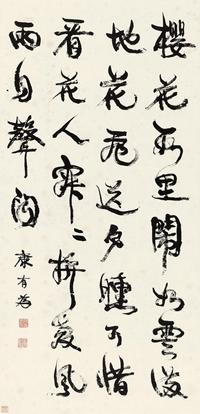 櫻花里鬧如雲
地花飛送夕曛可惜
看花人寂々風
雨自聲聞
康有為